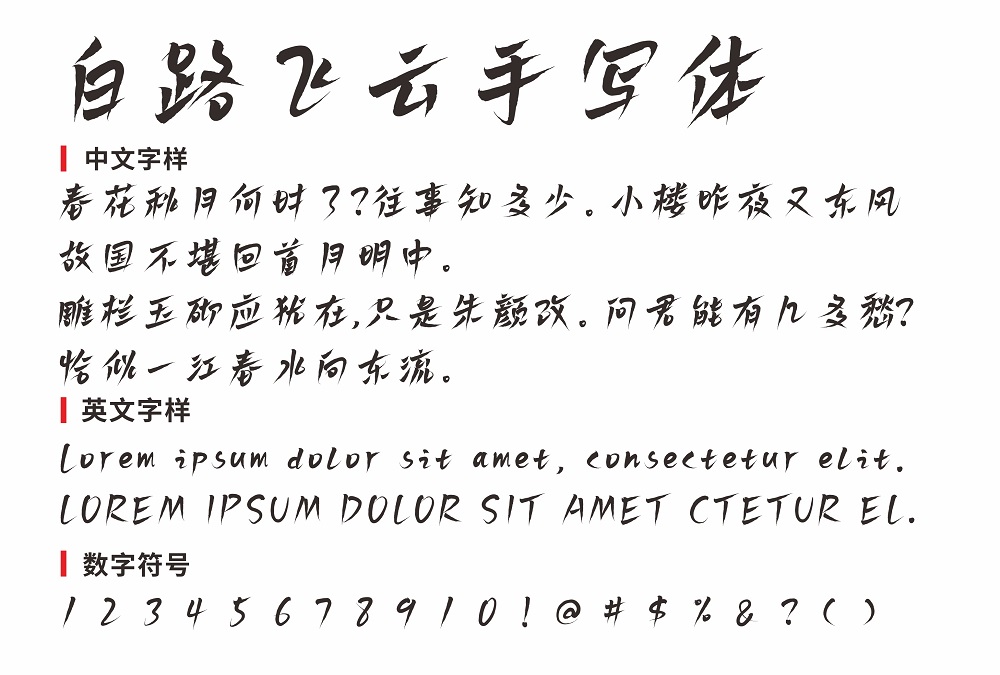 白路飞云手写体
中文字样
春花秋月何时了?往事知多少。小楼昨夜又东风
故国不堪回首月明中。
雕栏玉砌应犹在,只是朱颜改。问君能有几多愁?
恰似一江春水向东流。
英文字样
Lorem ipsum dolor sit amet, consectetur elit.
LOREM IPSUM DOLOR SIT AMET CTETUR EL.
数字符号
1 2 3 4 5 6 7 8 9 1 0 ! @ # $ % & ? ( )